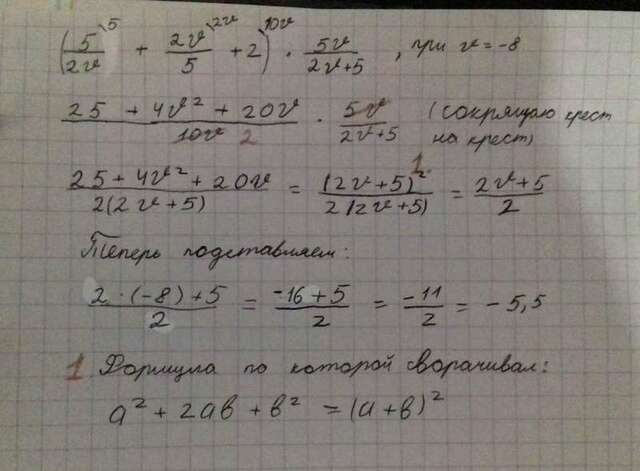 (5/2v \5 + 2v/5 \2v + 2 \10v) · 5v/2v+5 , при v = -8
25 + 4v² + 20v / 10v 2 · 5v / 2v+5 (сокращаю крест
на крест)
25 + 4v² + 20v / 2(2v+5) = (2v+5)² 1 / 2(2v+5) = 2v+5 / 2
Теперь подставляем:
2·(-8)+5 / 2 = -16+5 / 2 = -11 / 2 = -5,5
1 Формула по которой сворачивал:
a² + 2ab + b² = (a+b)²